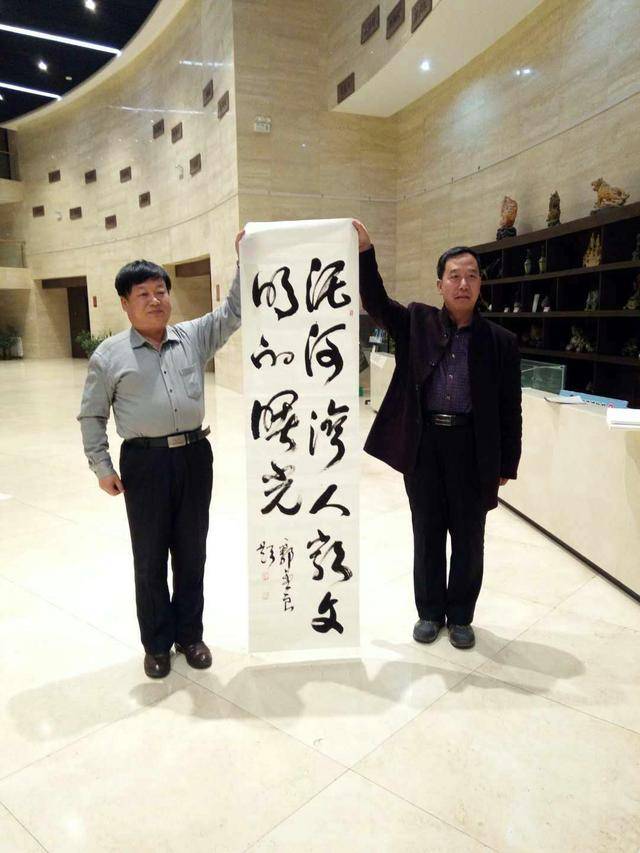 泥河湾人類文
明的曙光
郭
题